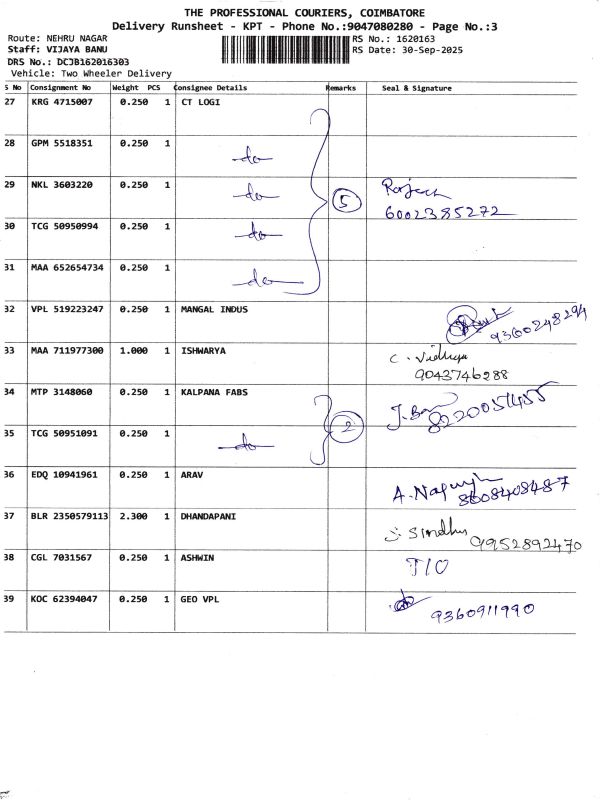 THE PROFESSIONAL COURIERS, COIMBATORE
Delivery Runsheet - KPT - Phone No.:9047080280 - Page No.:3
Route: NEHRU NAGAR RS No.: 1620163
Staff: VIJAYA BANU RS Date: 30-Sep-2025
DRS No.: DCJB162016303
Vehicle: Two Wheeler Delivery
S No Consignment No Weight PCS Consignee Details Remarks Seal & Signature
27 KRG 4715007 0.250 1 CT LOGI
28 GPM 5518351 0.250 1 do
29 NKL 3603220 0.250 1 do 5 Rajesh
6002385272
30 TCG 50950994 0.250 1 do
31 MAA 652654734 0.250 1 do
32 VPL 519223247 0.250 1 MANGAL INDUS 9360248294
33 MAA 711977300 1.000 1 ISHWARYA C. Vidhya
9043746288
34 MTP 3148060 0.250 1 KALPANA FABS 8220051455
35 TCG 50951091 0.250 1 do 2
36 EDQ 10941961 0.250 1 ARAV 8608408487
37 BLR 2350579113 2.300 1 DHANDAPANI Sindhu 9952892470
38 CGL 7031567 0.250 1 ASHWIN T/O
39 KOC 62394047 0.250 1 GEO VPL 9360911990